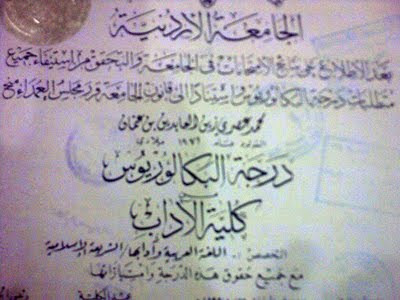 الجامعة الاردنية
بعد الاطلاع على نتائج الامتحانات في الجامعة والتحقق من استيفاء جميع
متطلبات درجة البكالوريوس استنادا الى قانون الجامعة قرر مجلس العمداء منح
محمد عصري زين العابدين بن عثمان
المولود سنة ١٩٧٦ ميلادي
درجة البكالوريوس
كلية الآداب
التخصص: اللغة العربية وآدابها/الشريعة الإسلامية
مع جميع حقوق هذه الدرجة وامتيازاتها
عميد الكلية